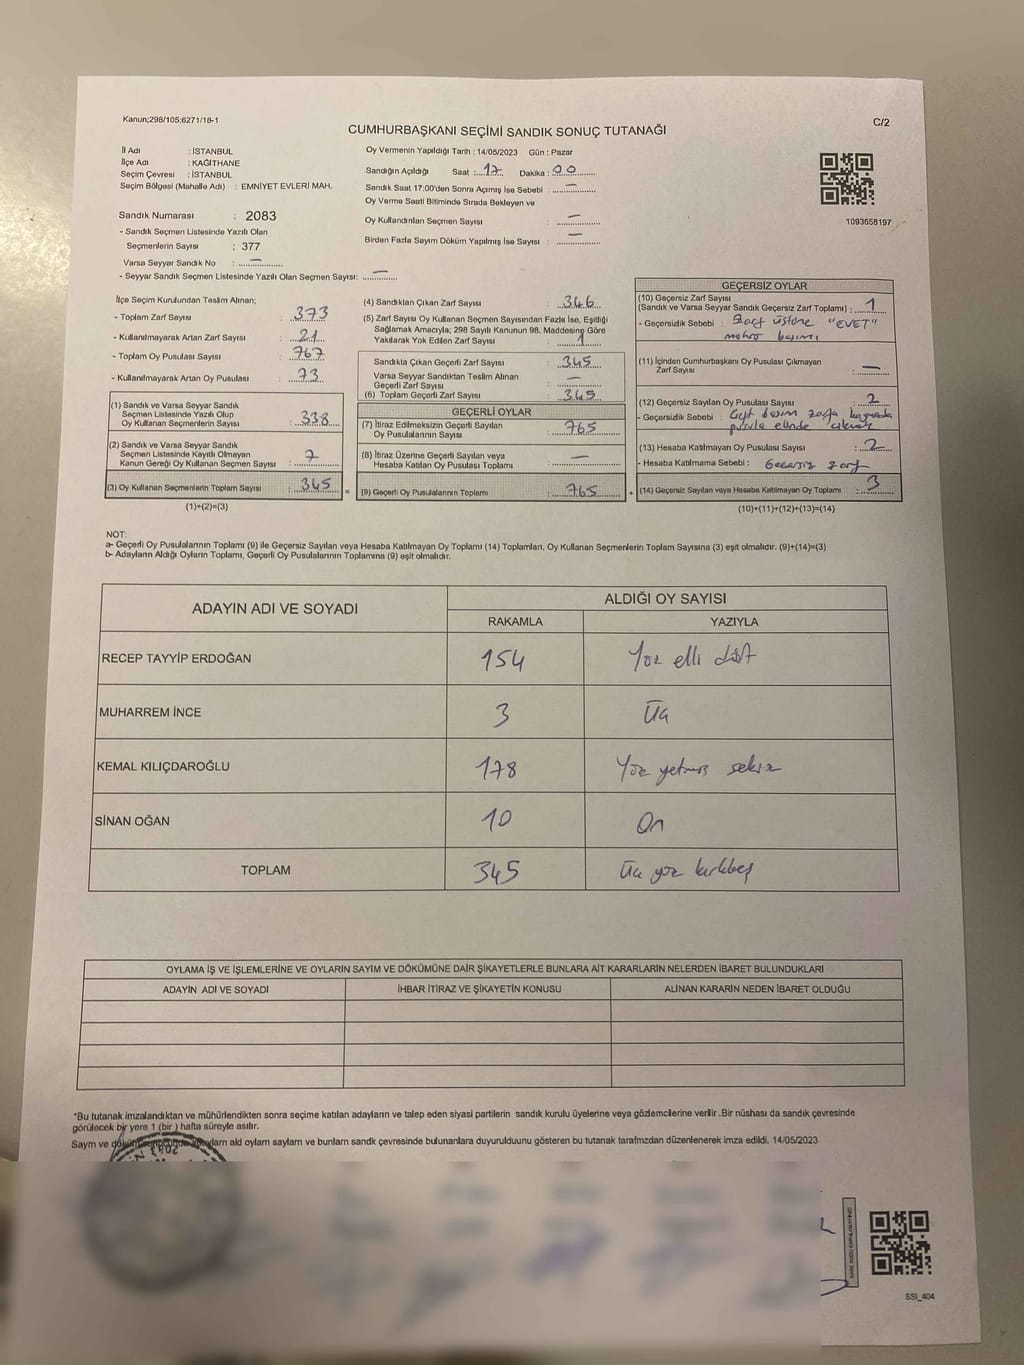 Kanun;298/105;6271/18-1
C/2
CUMHURBAŞKANI SEÇİMİ SANDIK SONUÇ TUTANAĞI
İl Adı : İSTANBUL
İlçe Adı : KAĞITHANE
Seçim Çevresi : İSTANBUL
Seçim Bölgesi (Mahalle Adı) : EMNİYET EVLERİ MAH.
Sandık Numarası : 2083
- Sandık Seçmen Listesinde Yazılı Olan
Seçmenlerin Sayısı : 377
Varsa Seyyar Sandık No : —
- Seyyar Sandık Seçmen Listesinde Yazılı Olan Seçmen Sayısı: —
Oy Vermenin Yapıldığı Tarih : 14/05/2023 Gün : Pazar
Sandığın Açıldığı Saat : 17 Dakika : 00
Sandık Saat 17:00'den Sonra Açımış İse Sebebi : —
Oy Verme Saati Bitiminde Sırada Bekleyen ve
Oy Kullandırılan Seçmen Sayısı : —
Birden Fazla Sayım Döküm Yapılmış İse Sayısı : —
1093658197
İlçe Seçim Kurulundan Teslim Alınan;
- Toplam Zarf Sayısı : 373
- Kullanılmayarak Artan Zarf Sayısı : 21
- Toplam Oy Pusulası Sayısı : 767
- Kullanılmayarak Artan Oy Pusulası : 73
(1) Sandık ve Varsa Seyyar Sandık
Seçmen Listesinde Yazılı Olup
Oy Kullanan Seçmenlerin Sayısı : 338
(2) Sandık ve Varsa Seyyar Sandık
Seçmen Listesinde Kayıtlı Olmayan
Kanun Gereği Oy Kullanan Seçmen Sayısı : 7
(3) Oy Kullanan Seçmenlerin Toplam Sayısı : 345 =
(1)+(2)=(3)
(4) Sandıktan Çıkan Zarf Sayısı : 346
(5) Zarf Sayısı Oy Kullanan Seçmen Sayısından Fazla İse, Eşitliği
Sağlamak Amacıyla; 298 Sayılı Kanunun 98. Maddesine Göre
Yakılarak Yok Edilen Zarf Sayısı : 1
Sandıkta Çıkan Geçerli Zarf Sayısı : 345
Varsa Seyyar Sandıktan Teslim Alınan
Geçerli Zarf Sayısı : —
(6) Toplam Geçerli Zarf Sayısı : 345
GEÇERLİ OYLAR
(7) İtiraz Edilmeksizin Geçerli Sayılan
Oy Pusulalarının Sayısı : 765
(8) İtiraz Üzerine Geçerli Sayılan veya
Hesaba Katılan Oy Pusulası Toplamı : —
(9) Geçerli Oy Pusulalarının Toplamı : 765 +
GEÇERSİZ OYLAR
(10) Geçersiz Zarf Sayısı
(Sandık ve Varsa Seyyar Sandık Geçersiz Zarf Toplamı) : 1
- Geçersizlik Sebebi : Zarf üstüne "EVET"
mührü basımı
(11) İçinden Cumhurbaşkanı Oy Pusulası Çıkmayan
Zarf Sayısı : —
(12) Geçersiz Sayılan Oy Pusulası Sayısı : 2
- Geçersizlik Sebebi : Çift basım zarfa
pusula
(13) Hesaba Katılmayan Oy Pusulası Sayısı : 2
- Hesaba Katılmama Sebebi : Geçersiz zarf
(14) Geçersiz Sayılan veya Hesaba Katılmayan Oy Toplamı : 3
(10)+(11)+(12)+(13)=(14)
NOT:
a- Geçerli Oy Pusulalarının Toplamı (9) ile Geçersiz Sayılan veya Hesaba Katılmayan Oy Toplamı (14) Toplamları, Oy Kullanan Seçmenlerin Toplam Sayısına (3) eşit olmalıdır. (9)+(14)=(3)
b- Adayların Aldığı Oyların Toplamı, Geçerli Oy Pusulalarının Toplamına (9) eşit olmalıdır.
ADAYIN ADI VE SOYADI
ALDIĞI OY SAYISI
RAKAMLA YAZIYLA
RECEP TAYYİP ERDOĞAN 154 Yüz elli dört
MUHARREM İNCE 3 Üç
KEMAL KILIÇDAROĞLU 178 Yüz yetmiş sekiz
SİNAN OĞAN 10 On
TOPLAM 345 Üç yüz kırkbeş
OYLAMA İŞ VE İŞLEMLERİNE VE OYLARIN SAYIM VE DÖKÜMÜNE DAİR ŞİKAYETLERLE BUNLARA AİT KARARLARIN NELERDEN İBARET BULUNDUKLARI
ADAYIN ADI VE SOYADI İHBAR İTİRAZ VE ŞİKAYETİN KONUSU ALINAN KARARIN NEDEN İBARET OLDUĞU
*Bu tutanak imzalandıktan ve mühürlendikten sonra seçime katılan adayların ve talep eden siyasi partilerin sandık kurulu üyelerine veya gözlemcilerine verilir .Bir nüshası da sandık çevresinde
görülecek bir yere 1 (bir ) hafta süreyle asılır.
Sayım ve ald oylam saylam ve bunlarn sandk çevresinde bulunanlara duyurulduunu gösteren bu tutanak tarafmzdan düzenlenerek imza edildi. 14/05/2023
2083
SSİ_404